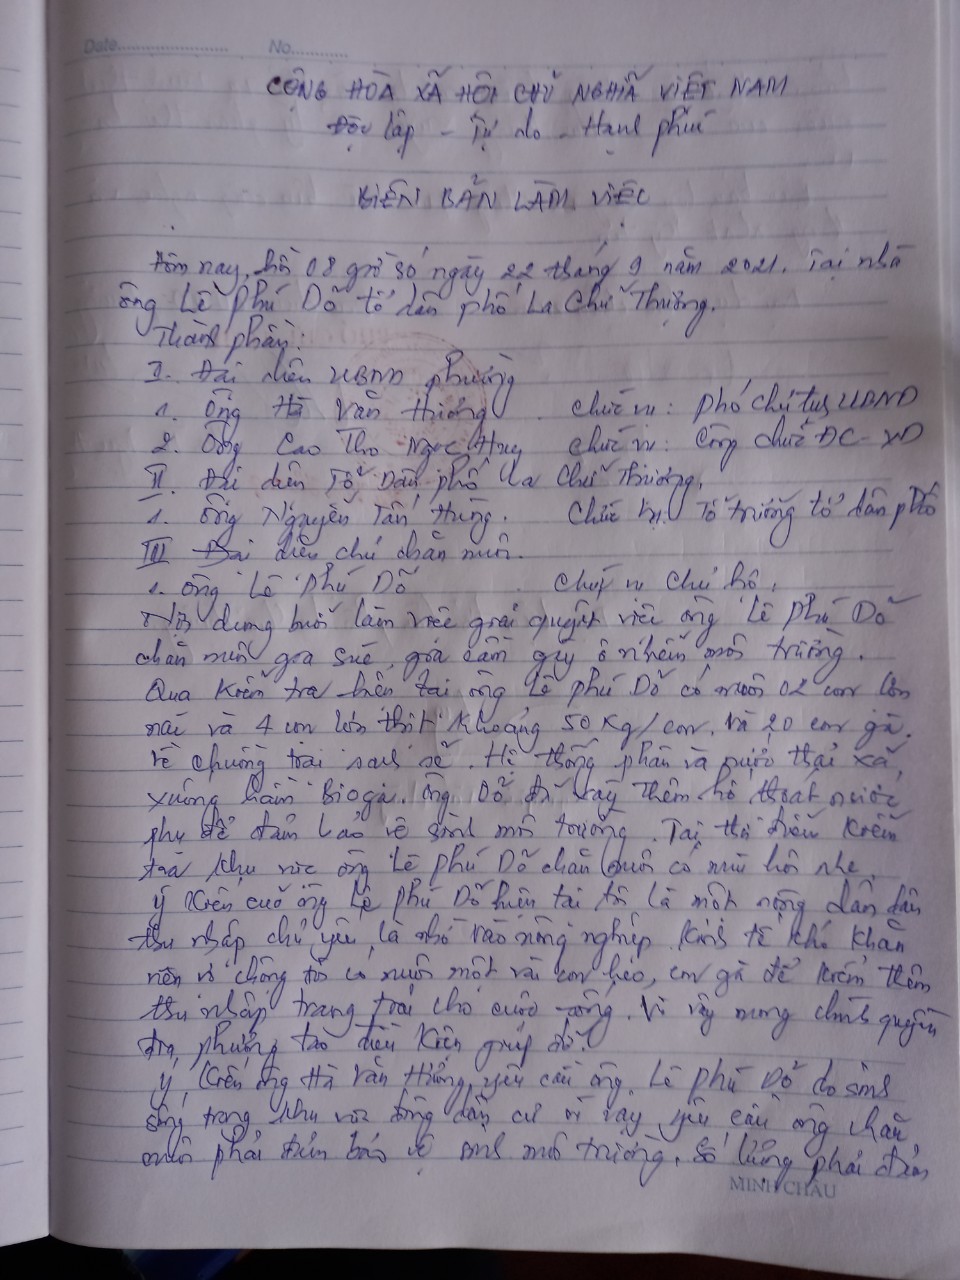 Date............ No............
CỘNG HÒA XÃ HỘI CHỦ NGHĨA VIỆT NAM
Độc lập - Tự do - Hạnh phúc
BIÊN BẢN LÀM VIỆC
Hôm nay, hồi 08 giờ 30 ngày 22 tháng 9 năm 2021. Tại nhà
ông Lê Phú Dỗ tổ dân phố La Chữ Thượng.
Thành phần:
I. Đại diện UBND phường
1. Ông Hà Văn Hưởng chức vụ: phó chủ tịch UBND
2. Ông Cao Thọ Ngọc Huy chức vụ: Công chức ĐC-XD
II. Đại diện Tổ Dân phố La Chữ Thượng.
1. Ông Nguyễn Tấn Hùng. Chức vụ: Tổ trưởng tổ dân phố
III Đại diện chủ chăn nuôi.
1. Ông Lê Phú Dỗ Chức vụ Chủ hộ.
Nội dung buổi làm việc giải quyết việc ông Lê Phú Dỗ
chăn nuôi gia súc, gia cầm gây ô nhiễm môi trường.
Qua kiểm tra hiện tại ông Lê Phú Dỗ có nuôi 02 con lợn
nái và 4 con lợn thịt khoảng 50 Kg/con. và 20 con gà.
Về chuồng trại sạch sẽ. Hệ thống phân và nước thải xả
xuống hầm Bioga. ông Dỗ đã xây thêm hồ thoát nước
phụ để đảm bảo vệ sinh môi trường. Tại thời điểm kiểm
tra khu vực ông Lê Phú Dỗ chăn nuôi có mùi hôi nhẹ.
Ý kiến của ông Lê Phú Dỗ hiện tại tôi là một nông dân
thu nhập chủ yếu là nhờ vào nông nghiệp. kinh tế khó khăn
nên vợ chồng tôi có nuôi một vài con heo, con gà để kiếm thêm
thu nhập trang trải cho cuộc sống. Vì vậy mong chính quyền
địa phương tạo điều kiện giúp đỡ.
Ý kiến ông Hà Văn Hưởng, yêu cầu ông Lê Phú Dỗ do sinh
sống trong khu vực đông dân cư vì vậy yêu cầu ông chăn
nuôi phải đảm bảo vệ sinh môi trường. Số lượng phải đảm
MINH CHÂU